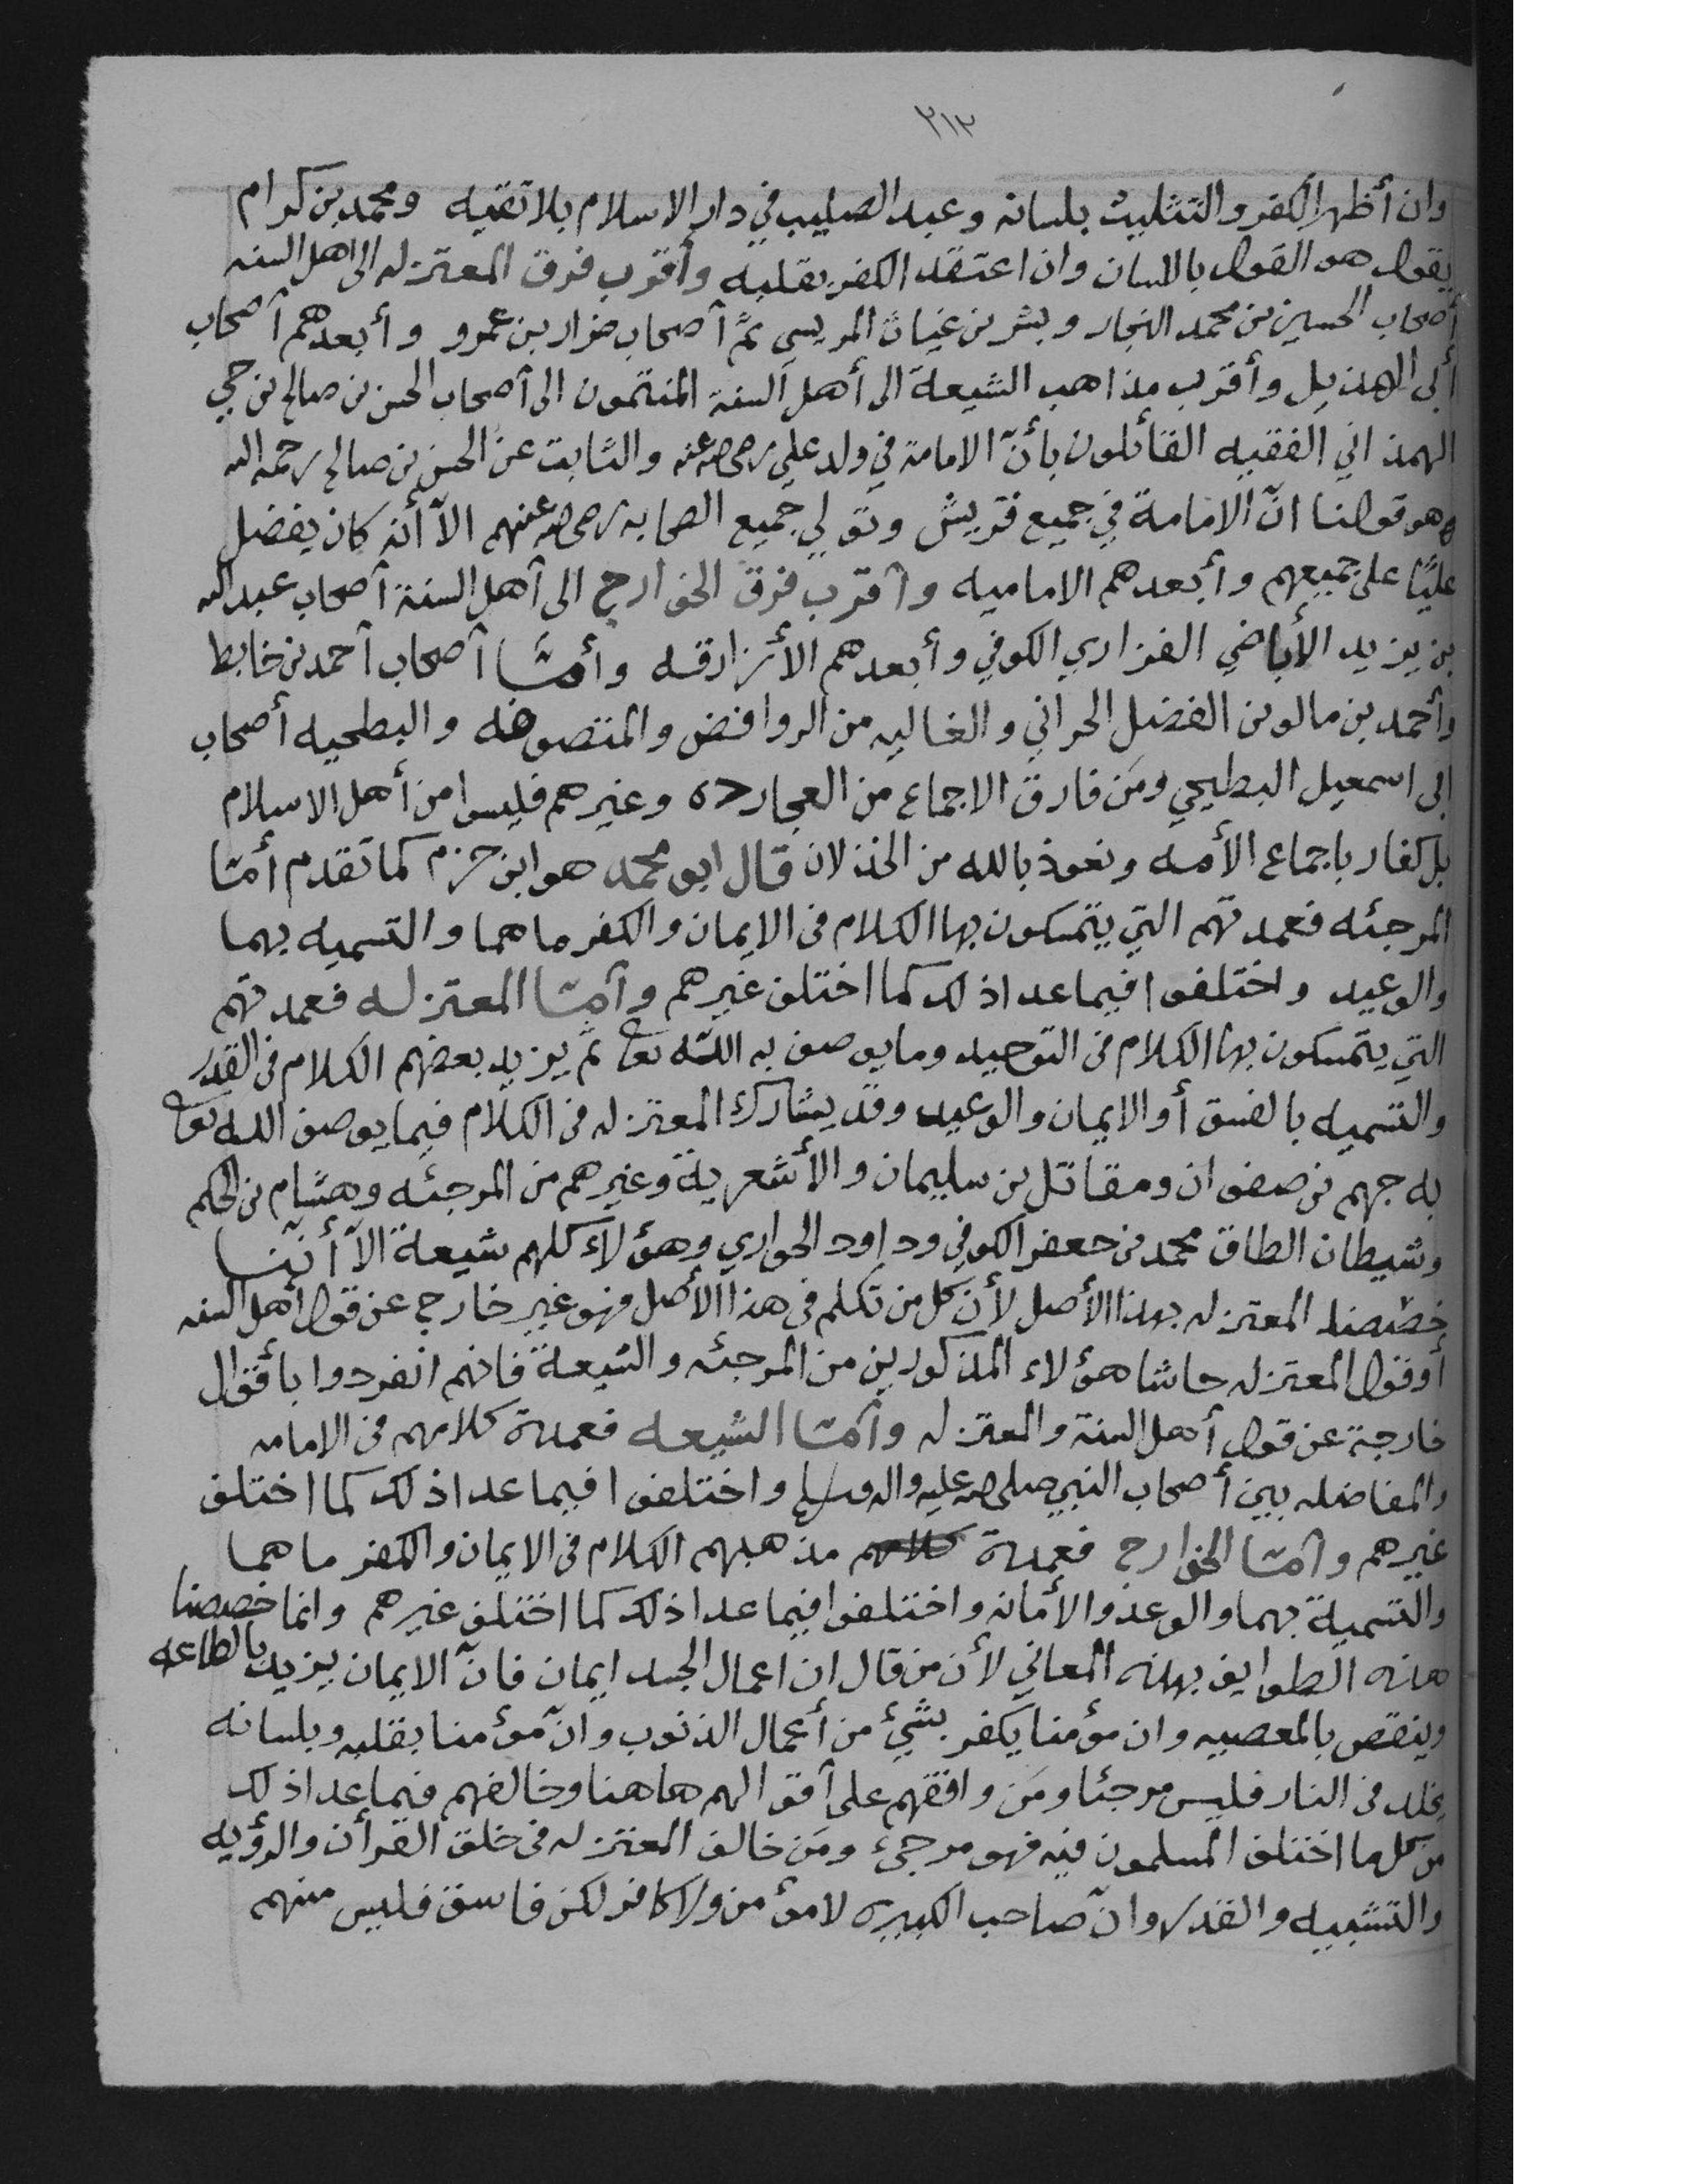 ٢١٣
وان أظهر الكفر والتثليث بلسانه وعبد الصليب في دار الاسلام بلا تقيه ومحمد بن كرام
يقول هو القول باللسان وان اعتقد الكفر بقلبه وأقرب فرق المعتزله الى اهل السنه
أصحاب الحسين بن محمد النجار وبشر بن غياث المريسي ثم أصحاب ضرار بن عمرو وأبعدهم أصحاب
أبى الهذيل وأقرب مذاهب الشيعة الى أهل السنة المنتمون الى أصحاب الحسن بن صالح بن حي
الهمذاني الفقيه القائلون بأنّ الامامة في ولد علي رضى الله عنه والثابت عن الحسن بن صالح رحمه الله
هو قولنا انّ الامامة في جميع قريش وتولي جميع الصحابه رضى الله عنهم الاّ أنه كان يفضل
عليّا على جميعهم وأبعدهم الاماميه وأقرب فرق الخوارج الى أهل السنة أصحاب عبد الله
بن يزيد الأباضي الفزاري الكوفي وأبعدهم الأزارقه وأمّا أصحاب أحمد بن خابط
وأحمد بن مالوس الفضل الحراني والغاليه من الروافض والمتصوفه والبطحيه أصحاب
ابى اسمعيل البطيحي ومَن فارق الاجماع من العجارده وغيرهم فليسوا من أهل الاسلام
بل كفار باجماع الأمه ونعوذ بالله من الخذلان قال ابو محمد هو ابن حزم كما تقدم أمّا
المرجئه فعمدتهم التي يتمسكون بها الكلام فى الايمان والكفر ما هما والتسميه بهما
والوعيد واختلفوا فيما عدا ذلك كما اختلف غيرهم وأمّا المعتزله فعمدتهم
التي يتمسكون بها الكلام فى التوحيد وما يوصف به الله تعا ثم يزيد بعضهم الكلام فى القدر
والتسميه بالفسق أو الايمان والوعيد وقد يشارك المعتزله فى الكلام فيما يوصف الله تعا
به جهم بن صفوان ومقاتل بن سليمان والأشعرية وغيرهم من المرجئه وهشام بن الحكم
وشيطان الطاق محمد بن جعفر الكوفي وداود الحواري وهؤلاء كلهم شيعة الاّ أنّنا
خصّصنا المعتزله بهذا الأصل لأن كل من تكلم فى هذا الأصل فهو غير خارج عن قول أهل السنه
أو قول المعتزله حاشا هؤلاء المذكورين من المرجئه والشيعة فانهم انفردوا بأقوال
خارجة عن قول أهل السنة والمعتزله وأمّا الشيعه فعمدة كلامهم فى الامامه
والمفاضله بين أصحاب النبي صلى الله عليه واله وسلم واختلفوا فيما عدا ذلك كما اختلف
غيرهم وأمّا الخوارج فعمدة كلامهم مذهبهم الكلام فى الايمان والكفر ما هما
والتسمية بهما والوعد والأمانه واختلفوا فيما عدا ذلك كما اختلف غيرهم وانما خصصنا
هذه الطوايف بهذه المعاني لأن من قال ان اعمال الجسد ايمان فانّ الايمان يزيد بالطاعه
وينقص بالمعصيه وان مؤمنا يكفر بشئ من أعمال الذنوب وانّ مؤمنا بقلبه وبلسانه
يخلد فى النار فليس مرجئا ومَن وافقهم على أقوالهم هاهنا وخالفهم فيما عدا ذلك
من كل ما اختلف المسلمون فيه فهو مرجئ ومَن خالف المعتزله فى خلق القرأن والرؤيه
والتشبيه والقدر وانّ صاحب الكبيره لا مؤمن ولا كافر لكن فاسق فليس منهم